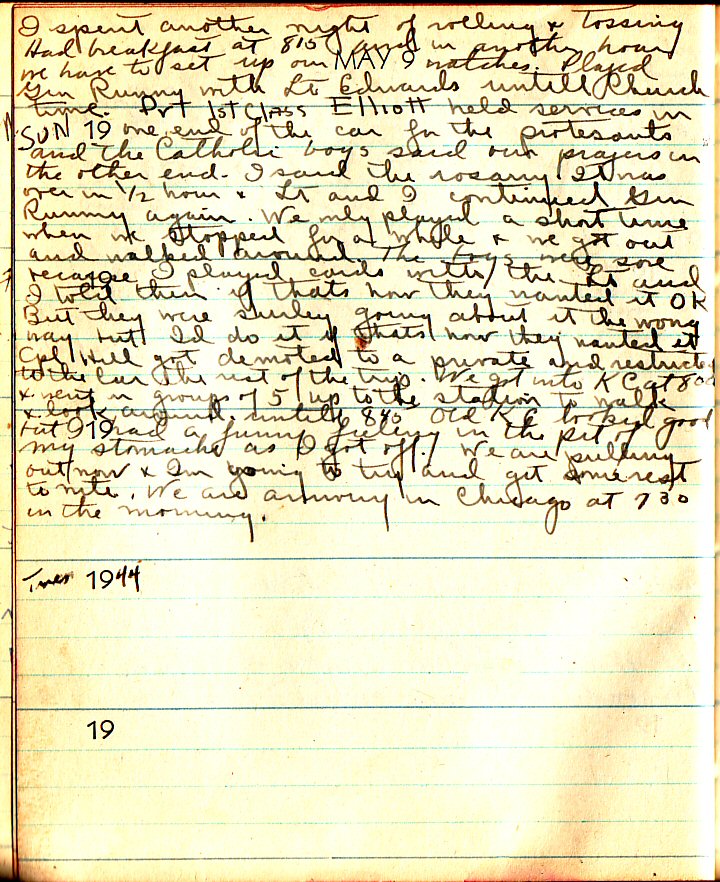 I spent another night of rolling & tossing
Had breakfast at 815 and in another hour
we have to set up our MAY 9 watches. Played
Gin Rummy with Lt Edwards untill Church
time. Pvt 1st Class Elliott held services in
SUN 19 one end of the car for the protesants
and the Catholic boys said our prayers in
the other end. I said the rosary It was
over in 1/2 hour & Lt and I continued Gin
Rummy again. We only played a short time
when we stopped for a while & we got out
and walked around. The boys were sore
because I played cards with the Lt and
19
I told them if thats how they wanted it OK
But they were surley going about it the wrong
way but Id do it if thats how they wanted it
Cpl Hill got demoted to a private and restricted
to the car the rest of the trip. We got into K C at 800
& went in groups of 5 up to the station to walk
& look around untill 845 Old K C looked good
19 had a funny feeling in the pit of
my stomache as I got off. We are pulling
out now & Im going to try and get some rest
to nite. We are arriving in Chicago at 730
in the morning.
Tues 1944
19